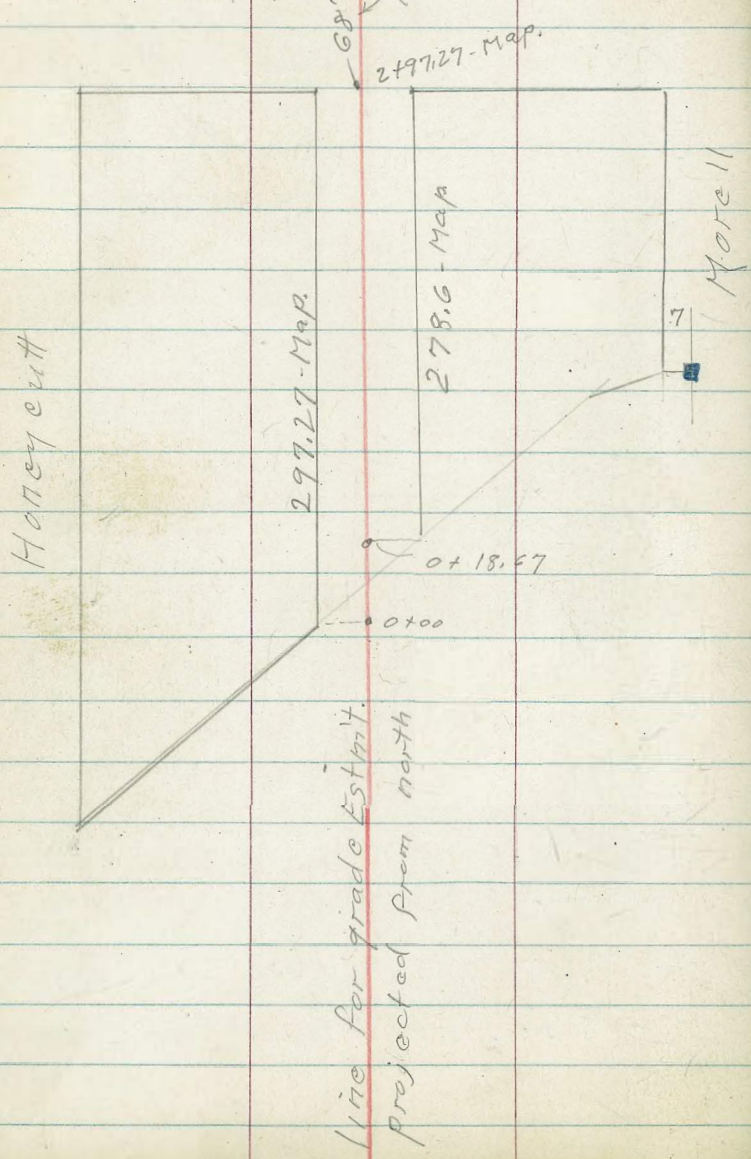 68
2+97.27-Map.
Honeycutt
297.27-Map.
278.6-Map
Morell
7
0+18.67
0+00
Line for grade Estm't.
projected from north